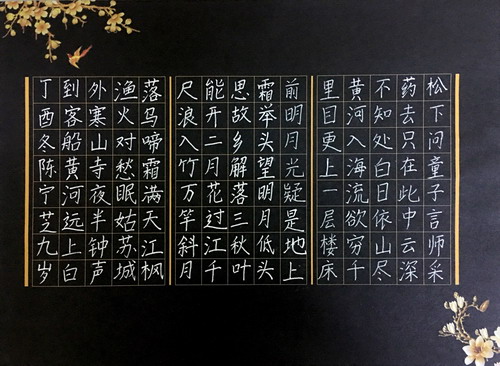 松下问童子言师采
药去只在此中云深
不知处白日依山尽
黄河入海流欲穷千
里目更上一层楼床
前明月光疑是地上
霜举头望明月低头
思故乡解落三秋叶
能开二月花过江千
尺浪入竹万竿斜月
落乌啼霜满天江枫
渔火对愁眠姑苏城
外寒山寺夜半钟声
到客船黄河远上白
丁酉冬陈宁芝九岁